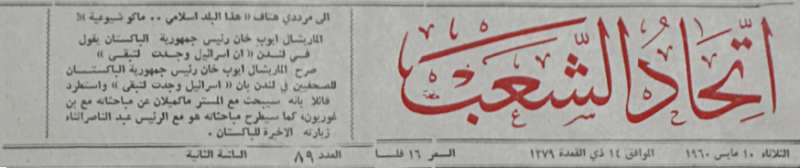 اتحاد الشعب
الى مرددي هتاف « هذا البلد اسلامي .. ماكو شيوعية »!
الماريشال ايوب خان رئيس جمهورية الباكستان يقول
في لندن « ان اسرائيل وجدت لتبقى »
صرح الماريشال ايوب خان رئيس جمهورية الباكستان
للصحفيين في لندن بان « اسرائيل وجدت لتبقى » واستطرد
قائلا بانه سيبحث مع المستر ماكميلان عن مباحثاته مع بن
غوريون، كما سيطرح مباحثاته هو مع الرئيس عبد الناصر اثناء
زيارته الاخيرة للباكستان .
الثلاثاء ١٠ مايس ١٩٦٠ الموافق ١٤ ذي القعدة ١٣٧٩ السعر ١٦ فلسا العدد ٨٩ السنة الثانية